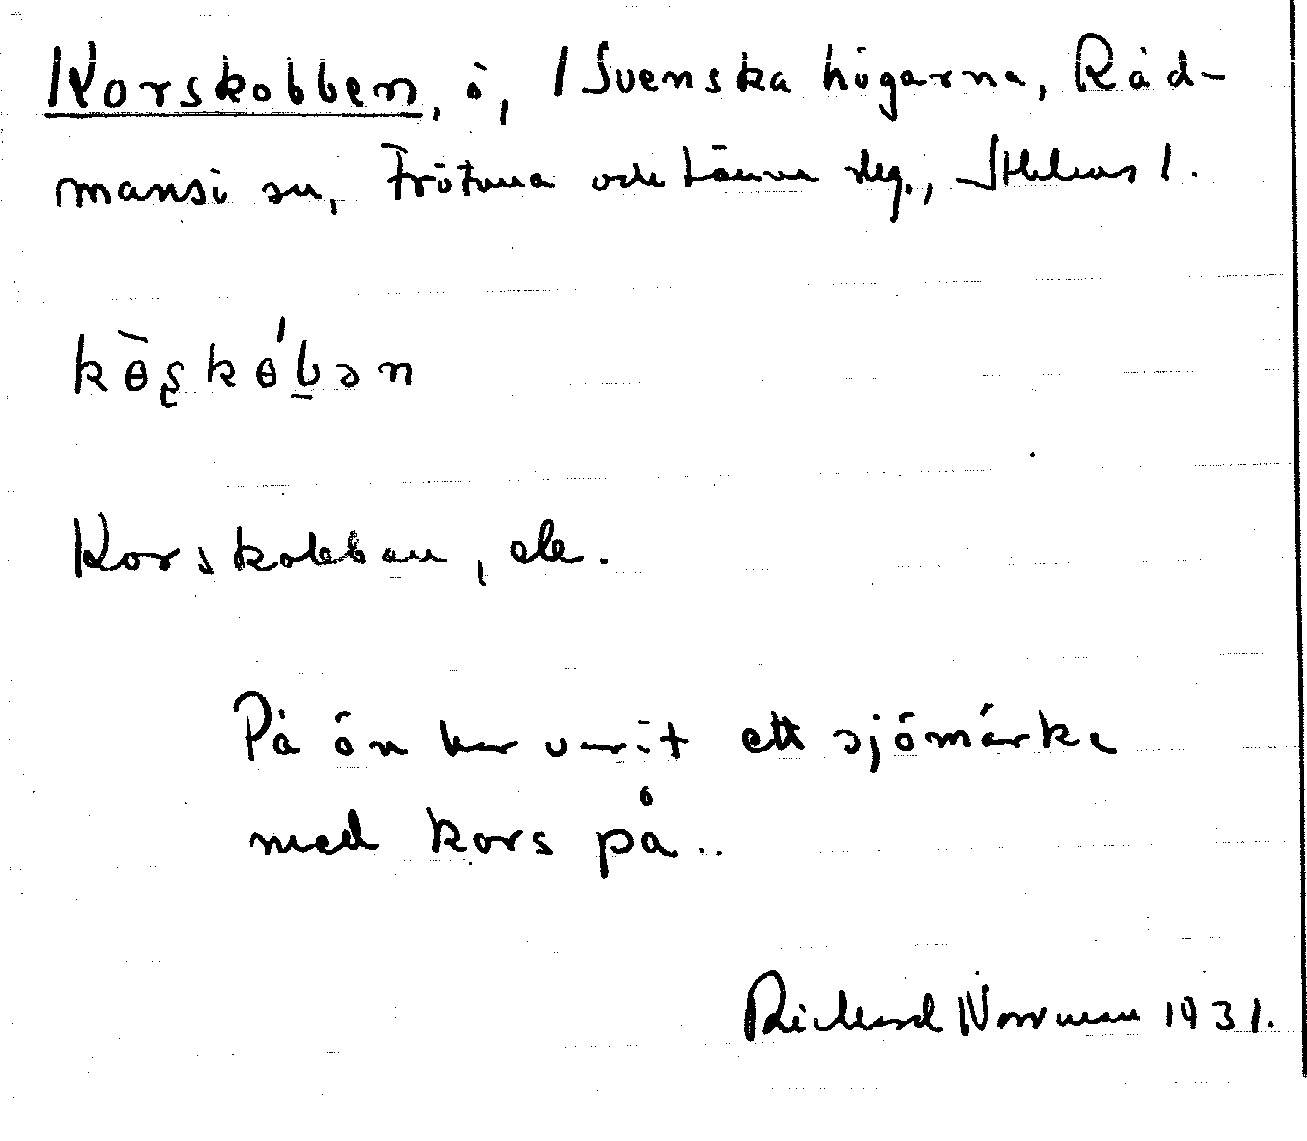 Korskobben, ö, / Svenska högarna, Råd-
mansö sn, Frötuna och Länna slg., Sthlms l.
kө̀ʂkө́b̲ən
Korskobben, ek.
På ön har varit ett sjömärke
med kors på..
Rickard Norrman 1931.